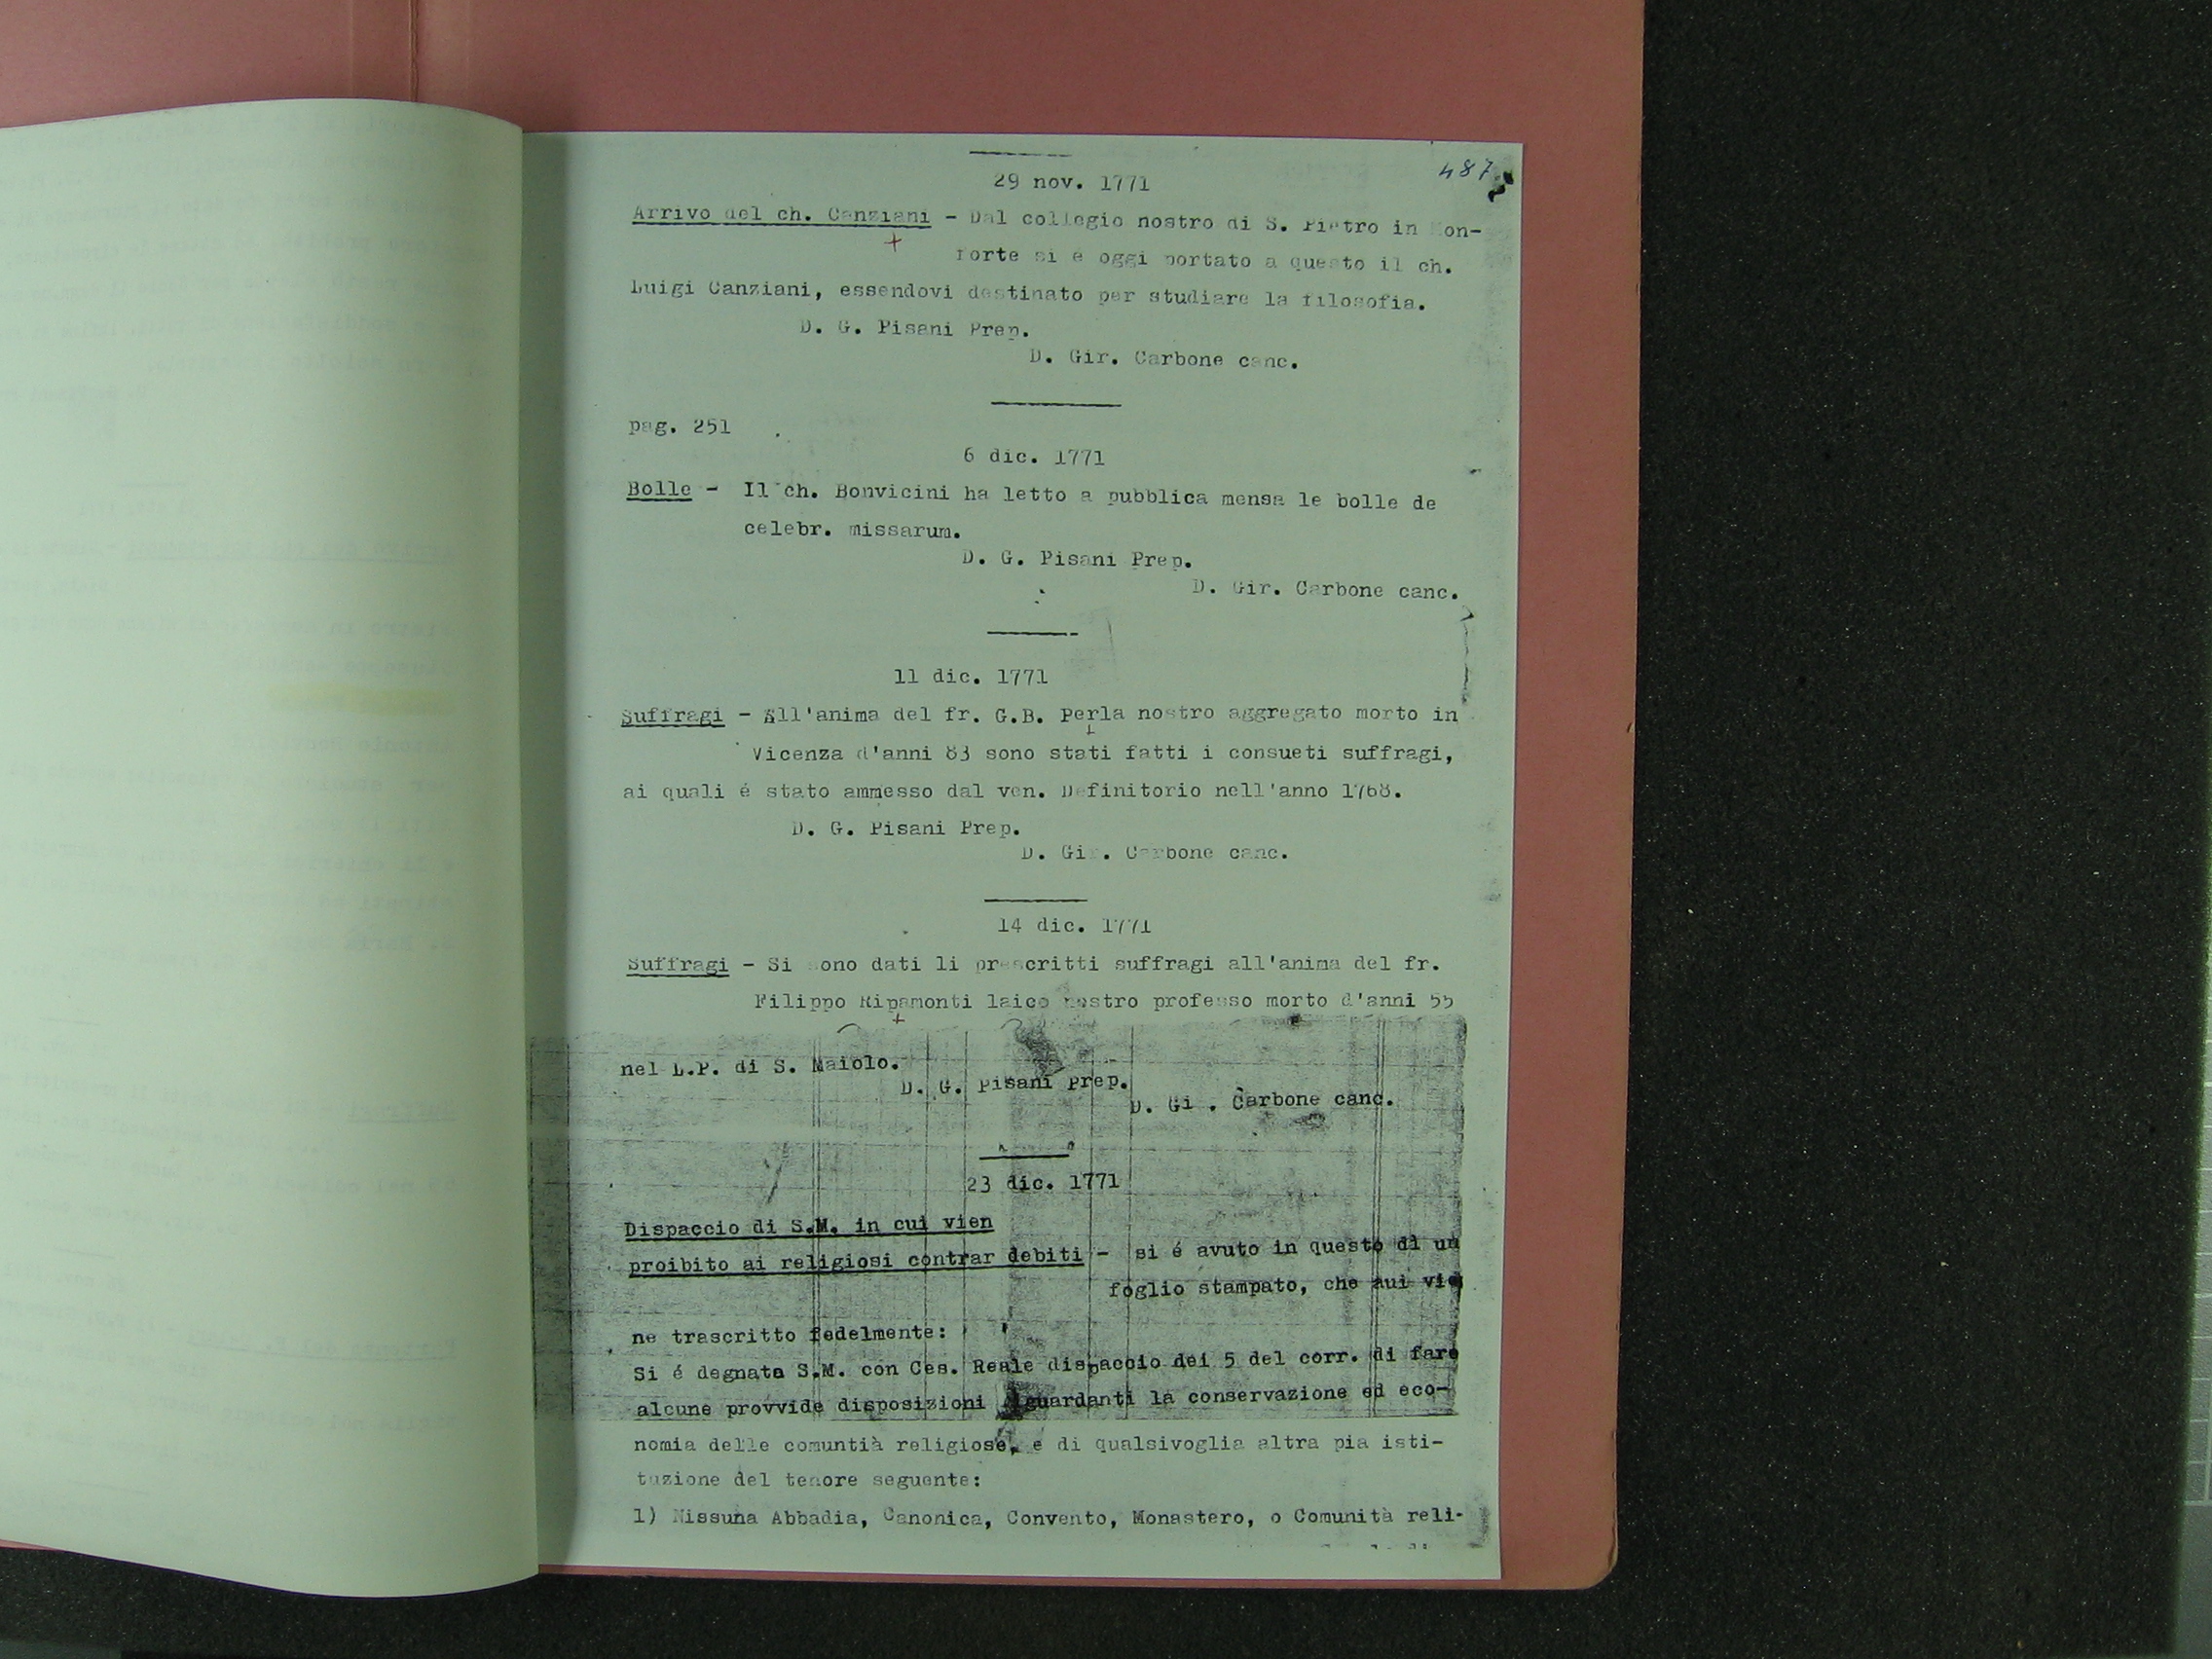 487
29 nov. 1771
Arrivo del ch. Canziani - Dal collegio nostro di S. Pietro in Mon-
forte si e oggi portato a questo il ch.
Luigi Canziani, essendovi destinato per studiare la filosofia.
D. G. Pisani Prep.
D. Gir. Carbone canc.
pag. 251
6 dic. 1771
Bolle - Il ch. Bonvicini ha letto a pubblica mensa le bolle de
celebr. missarum.
D. G. Pisani Prep.
D. Gir. Carbone canc.
11 dic. 1771
Suffragi - All'anima del fr. G.B. Perla nostro aggregato morto in
Vicenza d'anni 83 sono stati fatti i consueti suffragi,
ai quali é stato ammesso dal ven. Definitorio nell'anno 1768.
D. G. Pisani Prep.
D. Gir. Carbone canc.
14 dic. 1771
Suffragi - Si sono dati li prescritti suffragi all'anima del fr.
Filippo Ripamonti laico nostro professo morto d'anni 55
nel L.P. di S. Maiolo.
D. G. Pisani Prep.
D. Gi . Carbone canc.
23 dic. 1771
Dispaccio di S.M. in cui vien
proibito ai religiosi contrar debiti - si é avuto in questo dì un
foglio stampato, che qui vie
ne trascritto fedelmente:
Si é degnata S.M. con Ces. Reale dispaccio dei 5 del corr. di fare
alcune provvide disposizioni riguardanti la conservazione ed eco-
nomia delle comuntià religiose, e di qualsivoglia altra pia isti-
tuzione del tenore seguente:
1) Nissuna Abbadia, Canonica, Convento, Monastero, o Comunità reli-